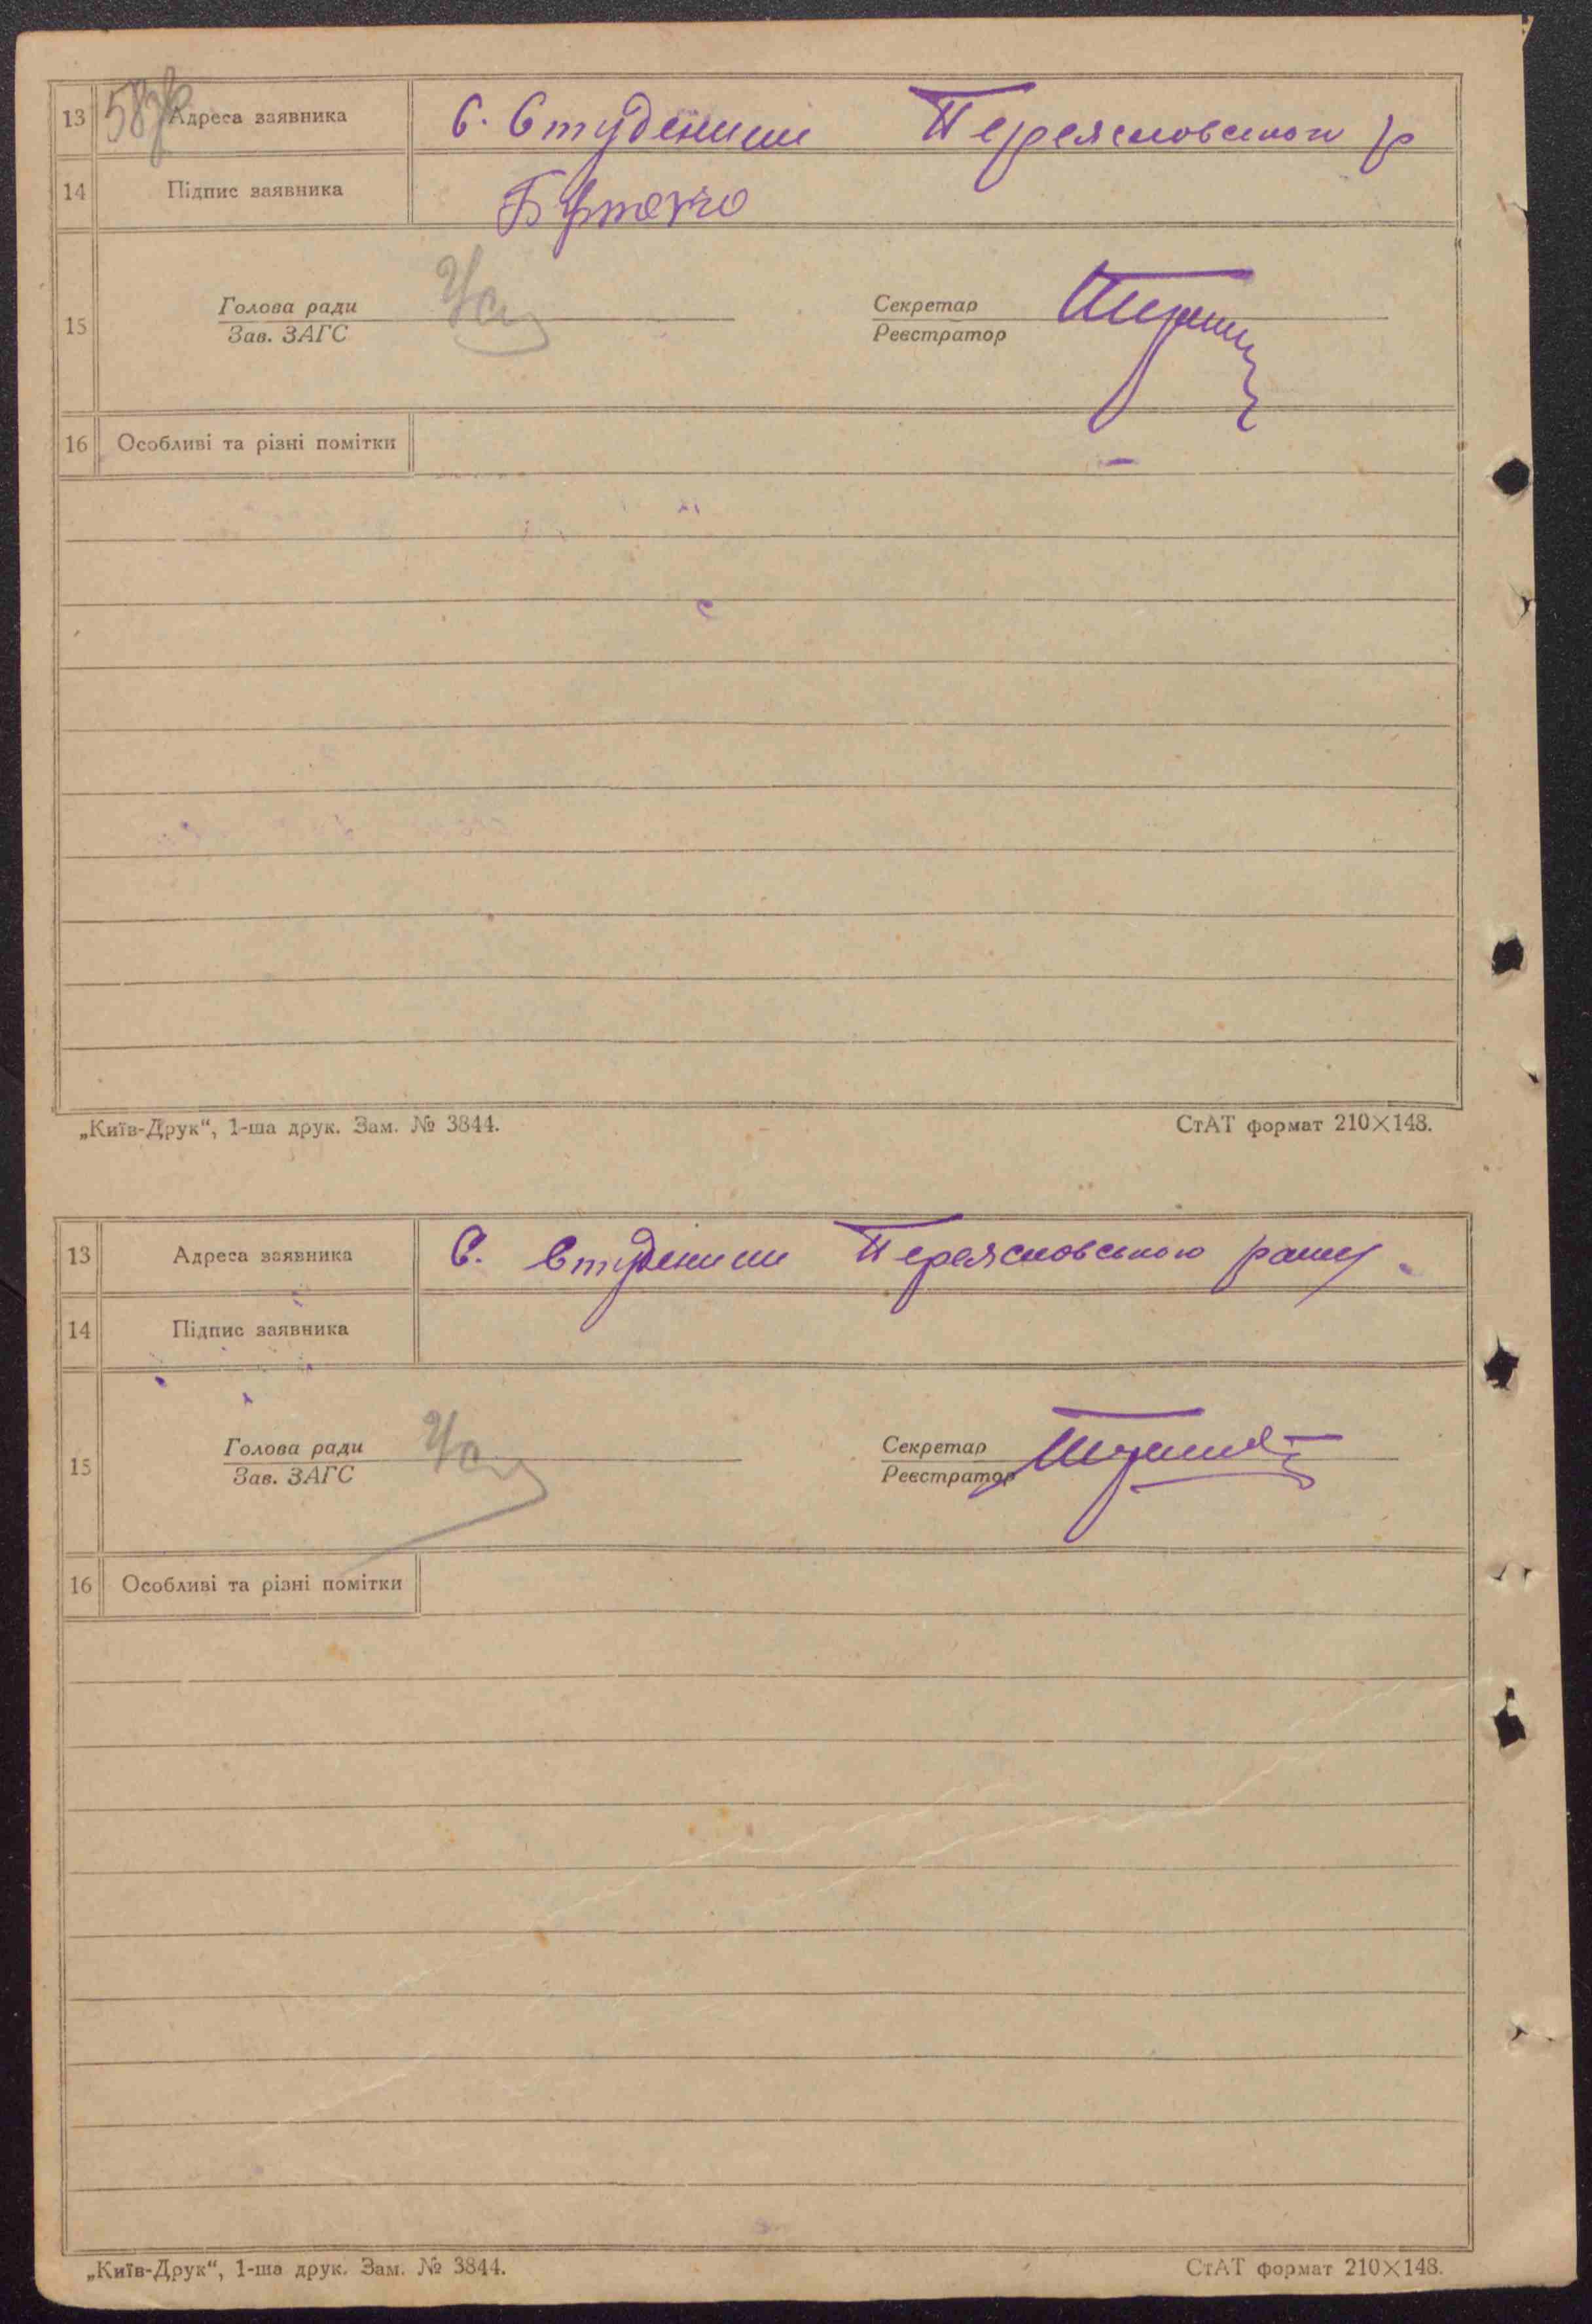 58зв
13 Адреса заявника С. Студеники Переяславського р
14 Підпис заявника
15 Голова ради Секретар
Зав. ЗАГС Реєстратор
16 Особливі та різні помітки
„Київ-Друк“, 1-ша друк. Зам. № 3844. СтАТ формат 210×148.
13 Адреса заявника С. Студеники Переяславського району.
14 Підпис заявника
15 Голова ради Секретар
Зав. ЗАГС Реєстратор
16 Особливі та різні помітки
„Київ-Друк“, 1-ша друк. Зам. № 3844. СтАТ формат 210×148.